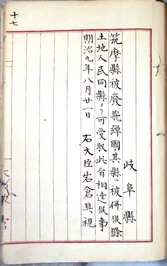 十七
岐阜縣
筑摩縣被廢飛騨國其縣ヘ被併候條
土地人民同縣ヨリ可受取此旨相達候事
明治九年八月廿一日
右大臣岩倉具視